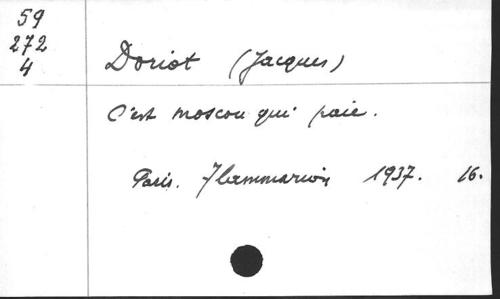 59
272
4
Doriot (Jacques)
C'est moscou qui paie.
Paris. Flammarion 1937. 16.